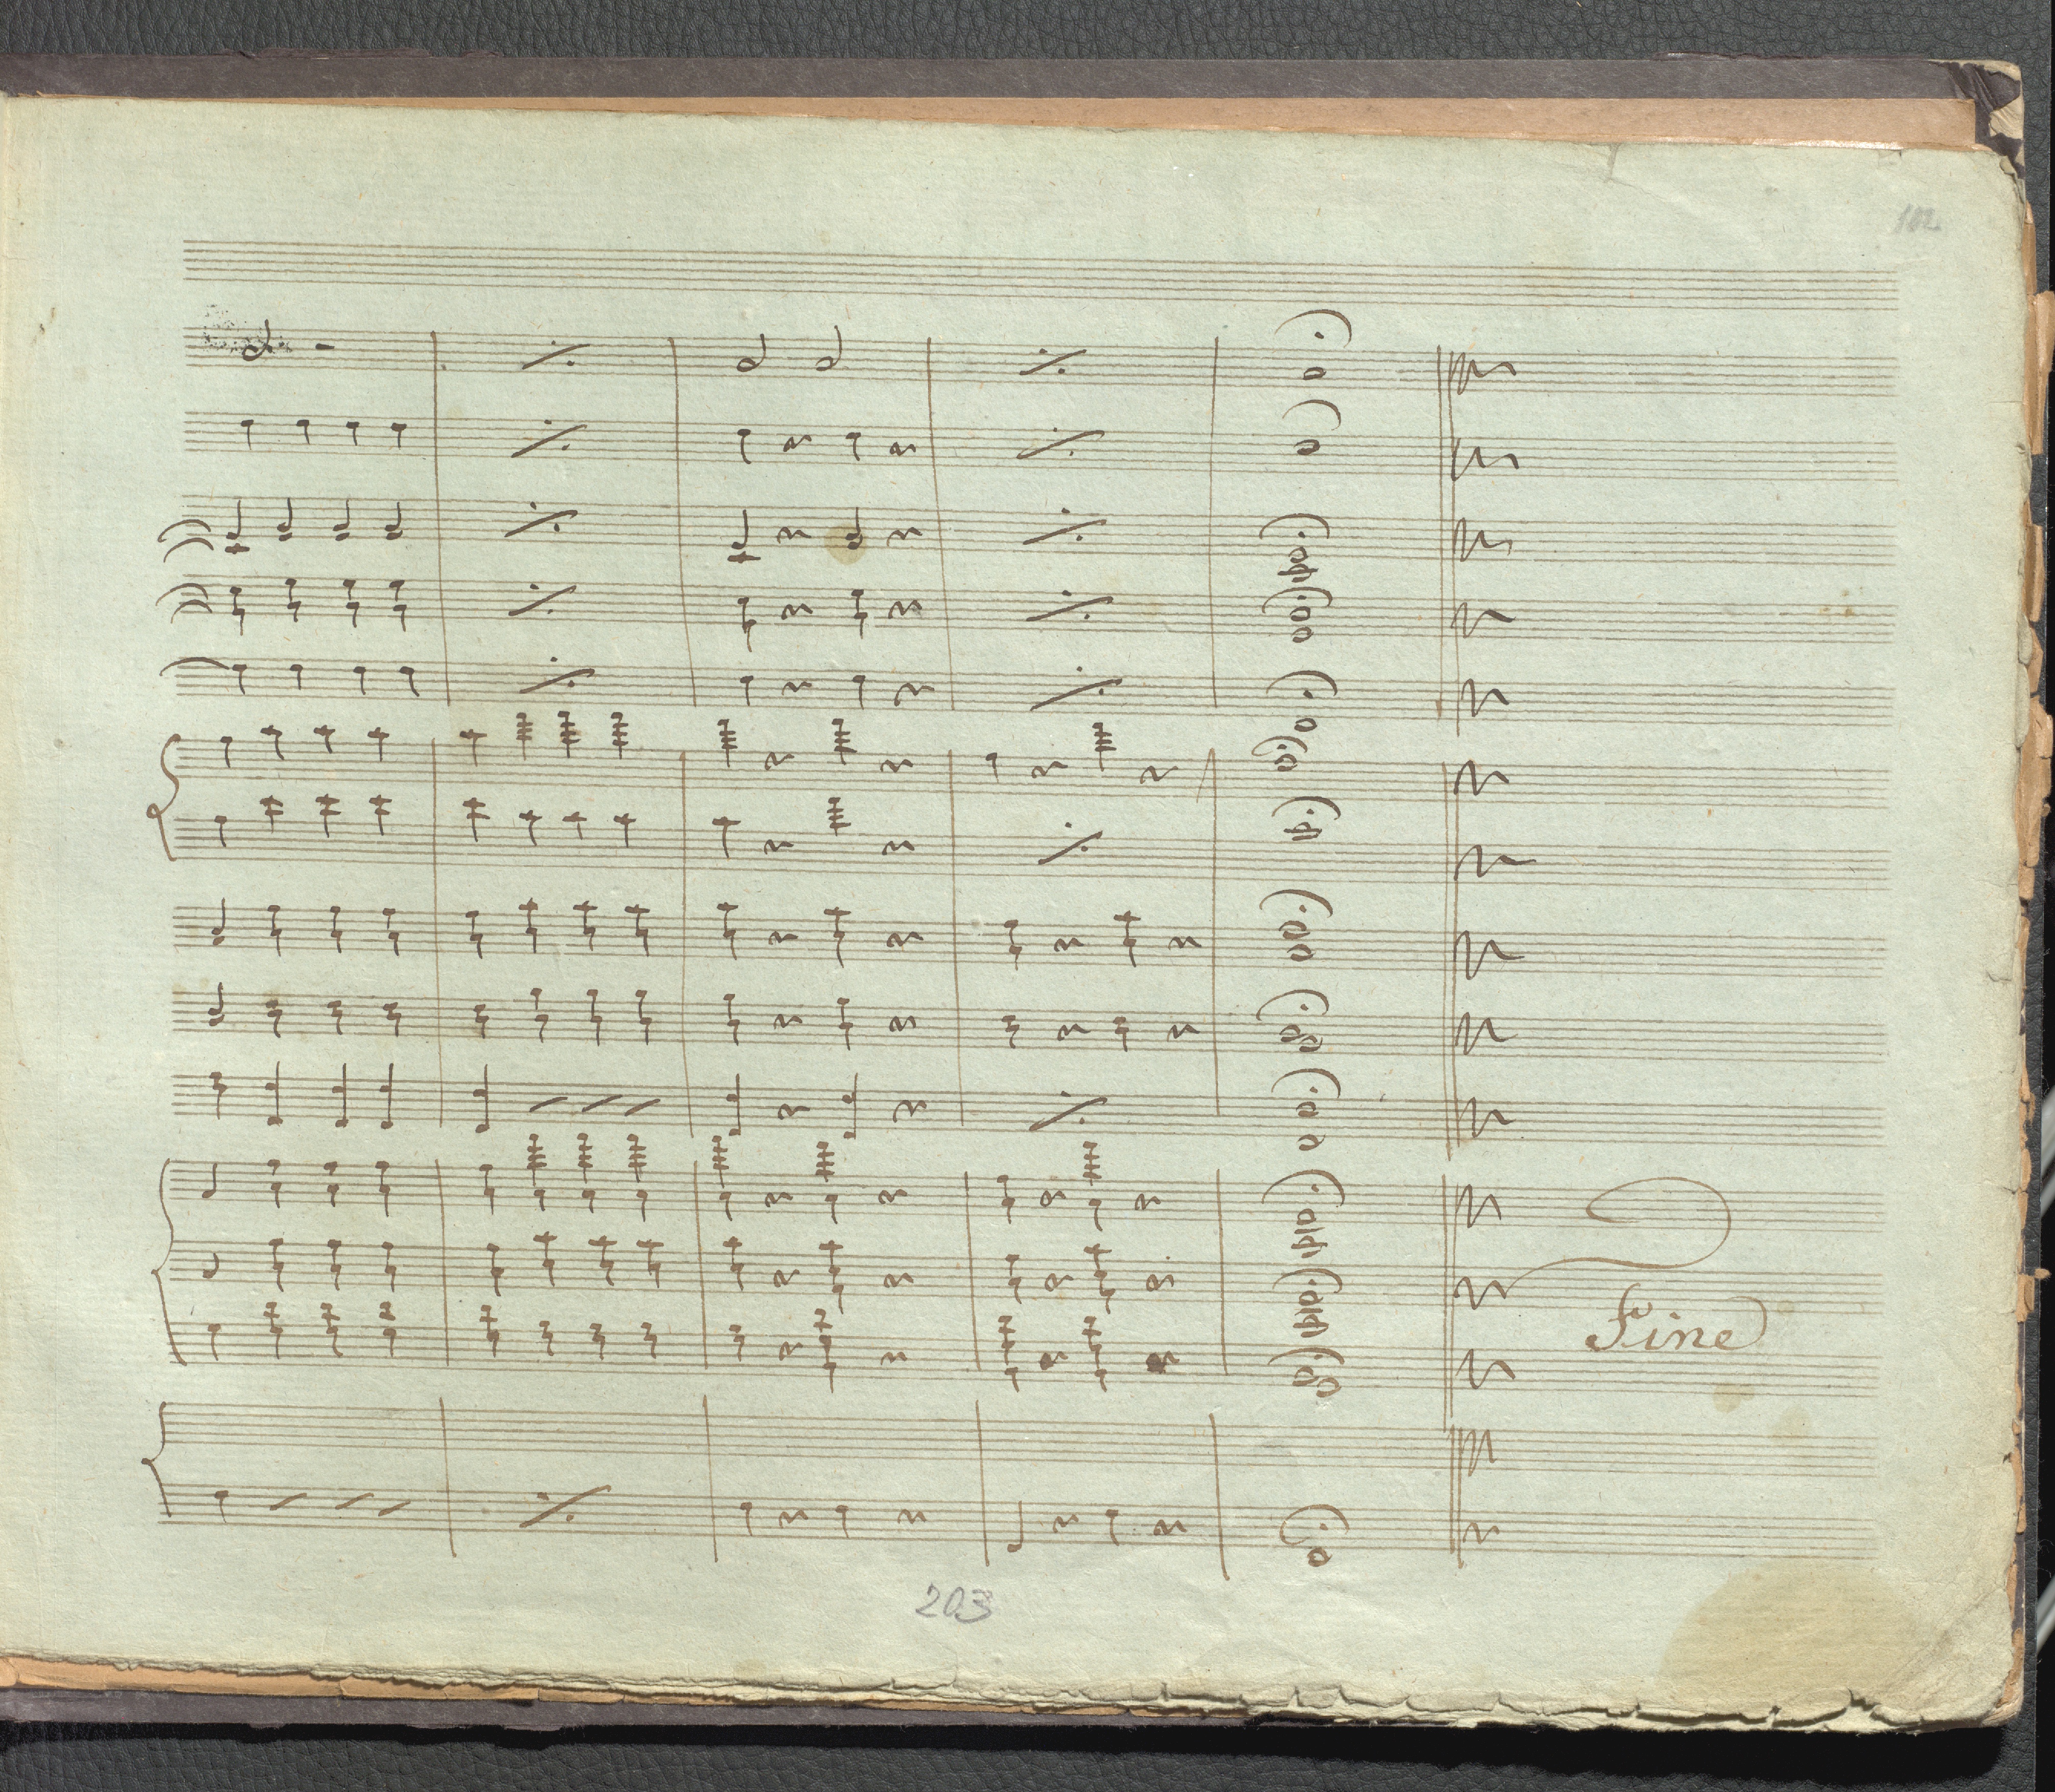 102
Fine
203